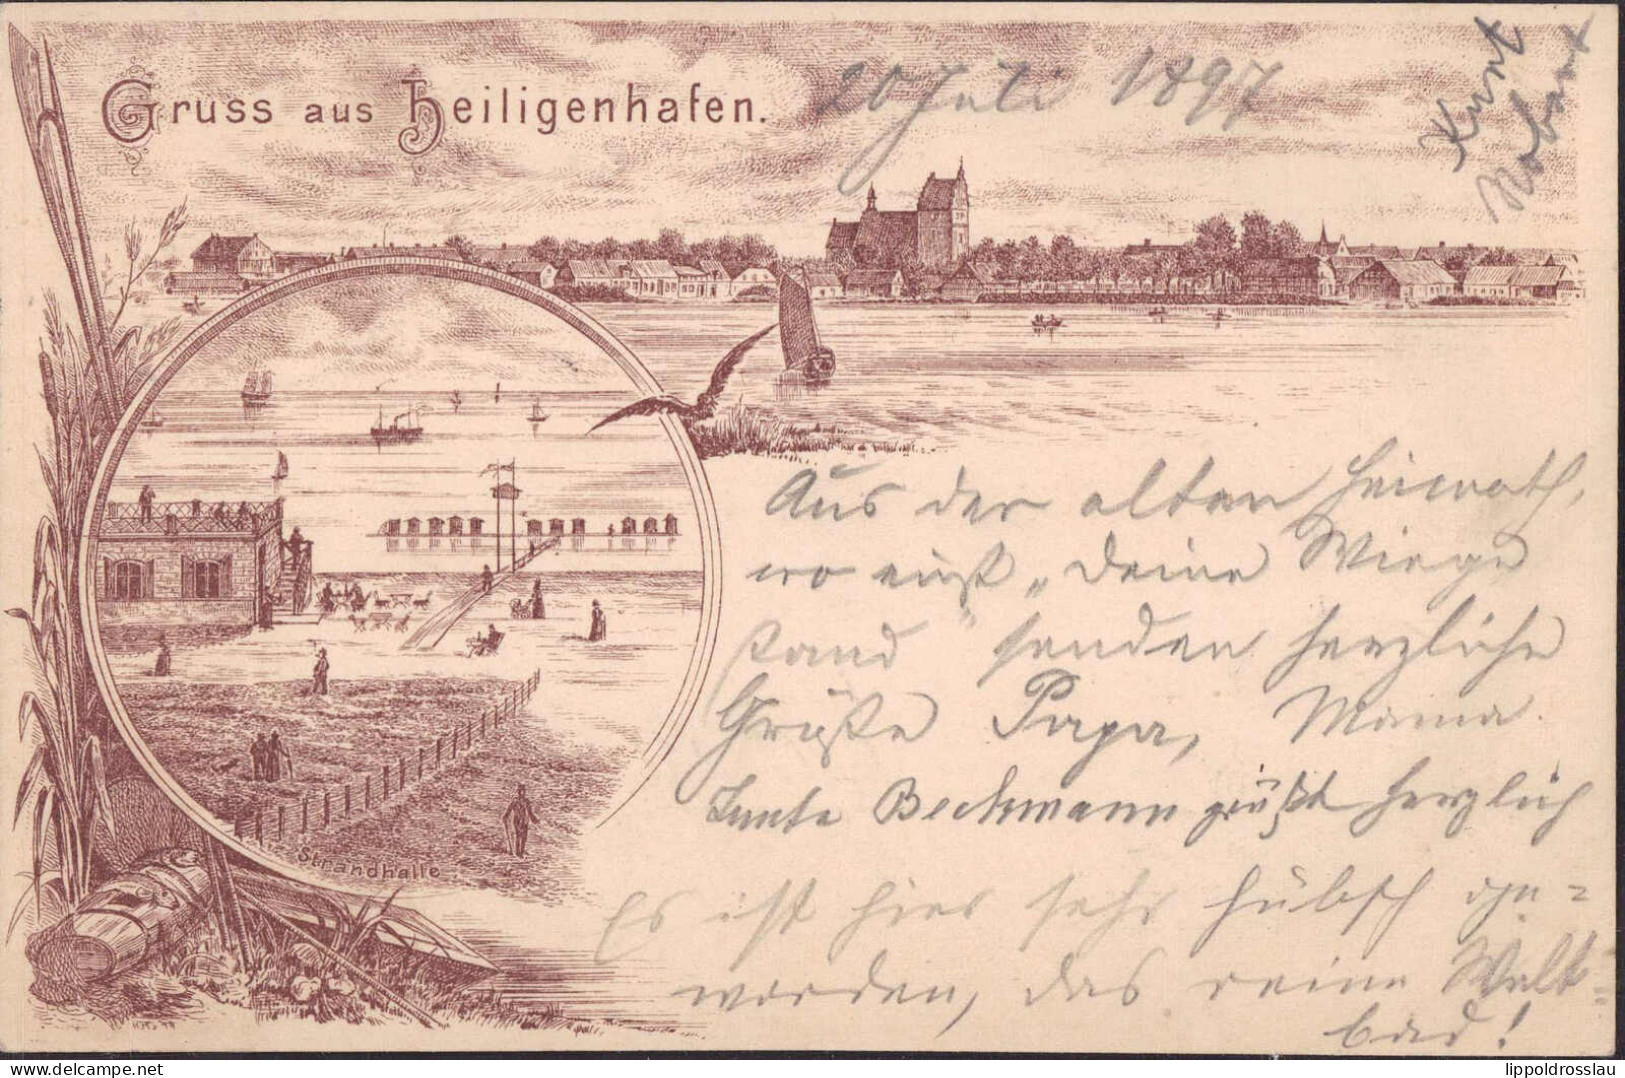 Gruss aus Heiligenhafen.
20 Juli 1897
Kurt
Aus der alten Heimath,
wo einst „Deine Wiege
stand" senden herzliche
Grüße Papa, Mama.
Tante Beckmann grüßt herzlich
Es ist hier sehr hübsch ge=
worden, das reine Welt=
bad!
Strandhalle.
lippoldrosslau